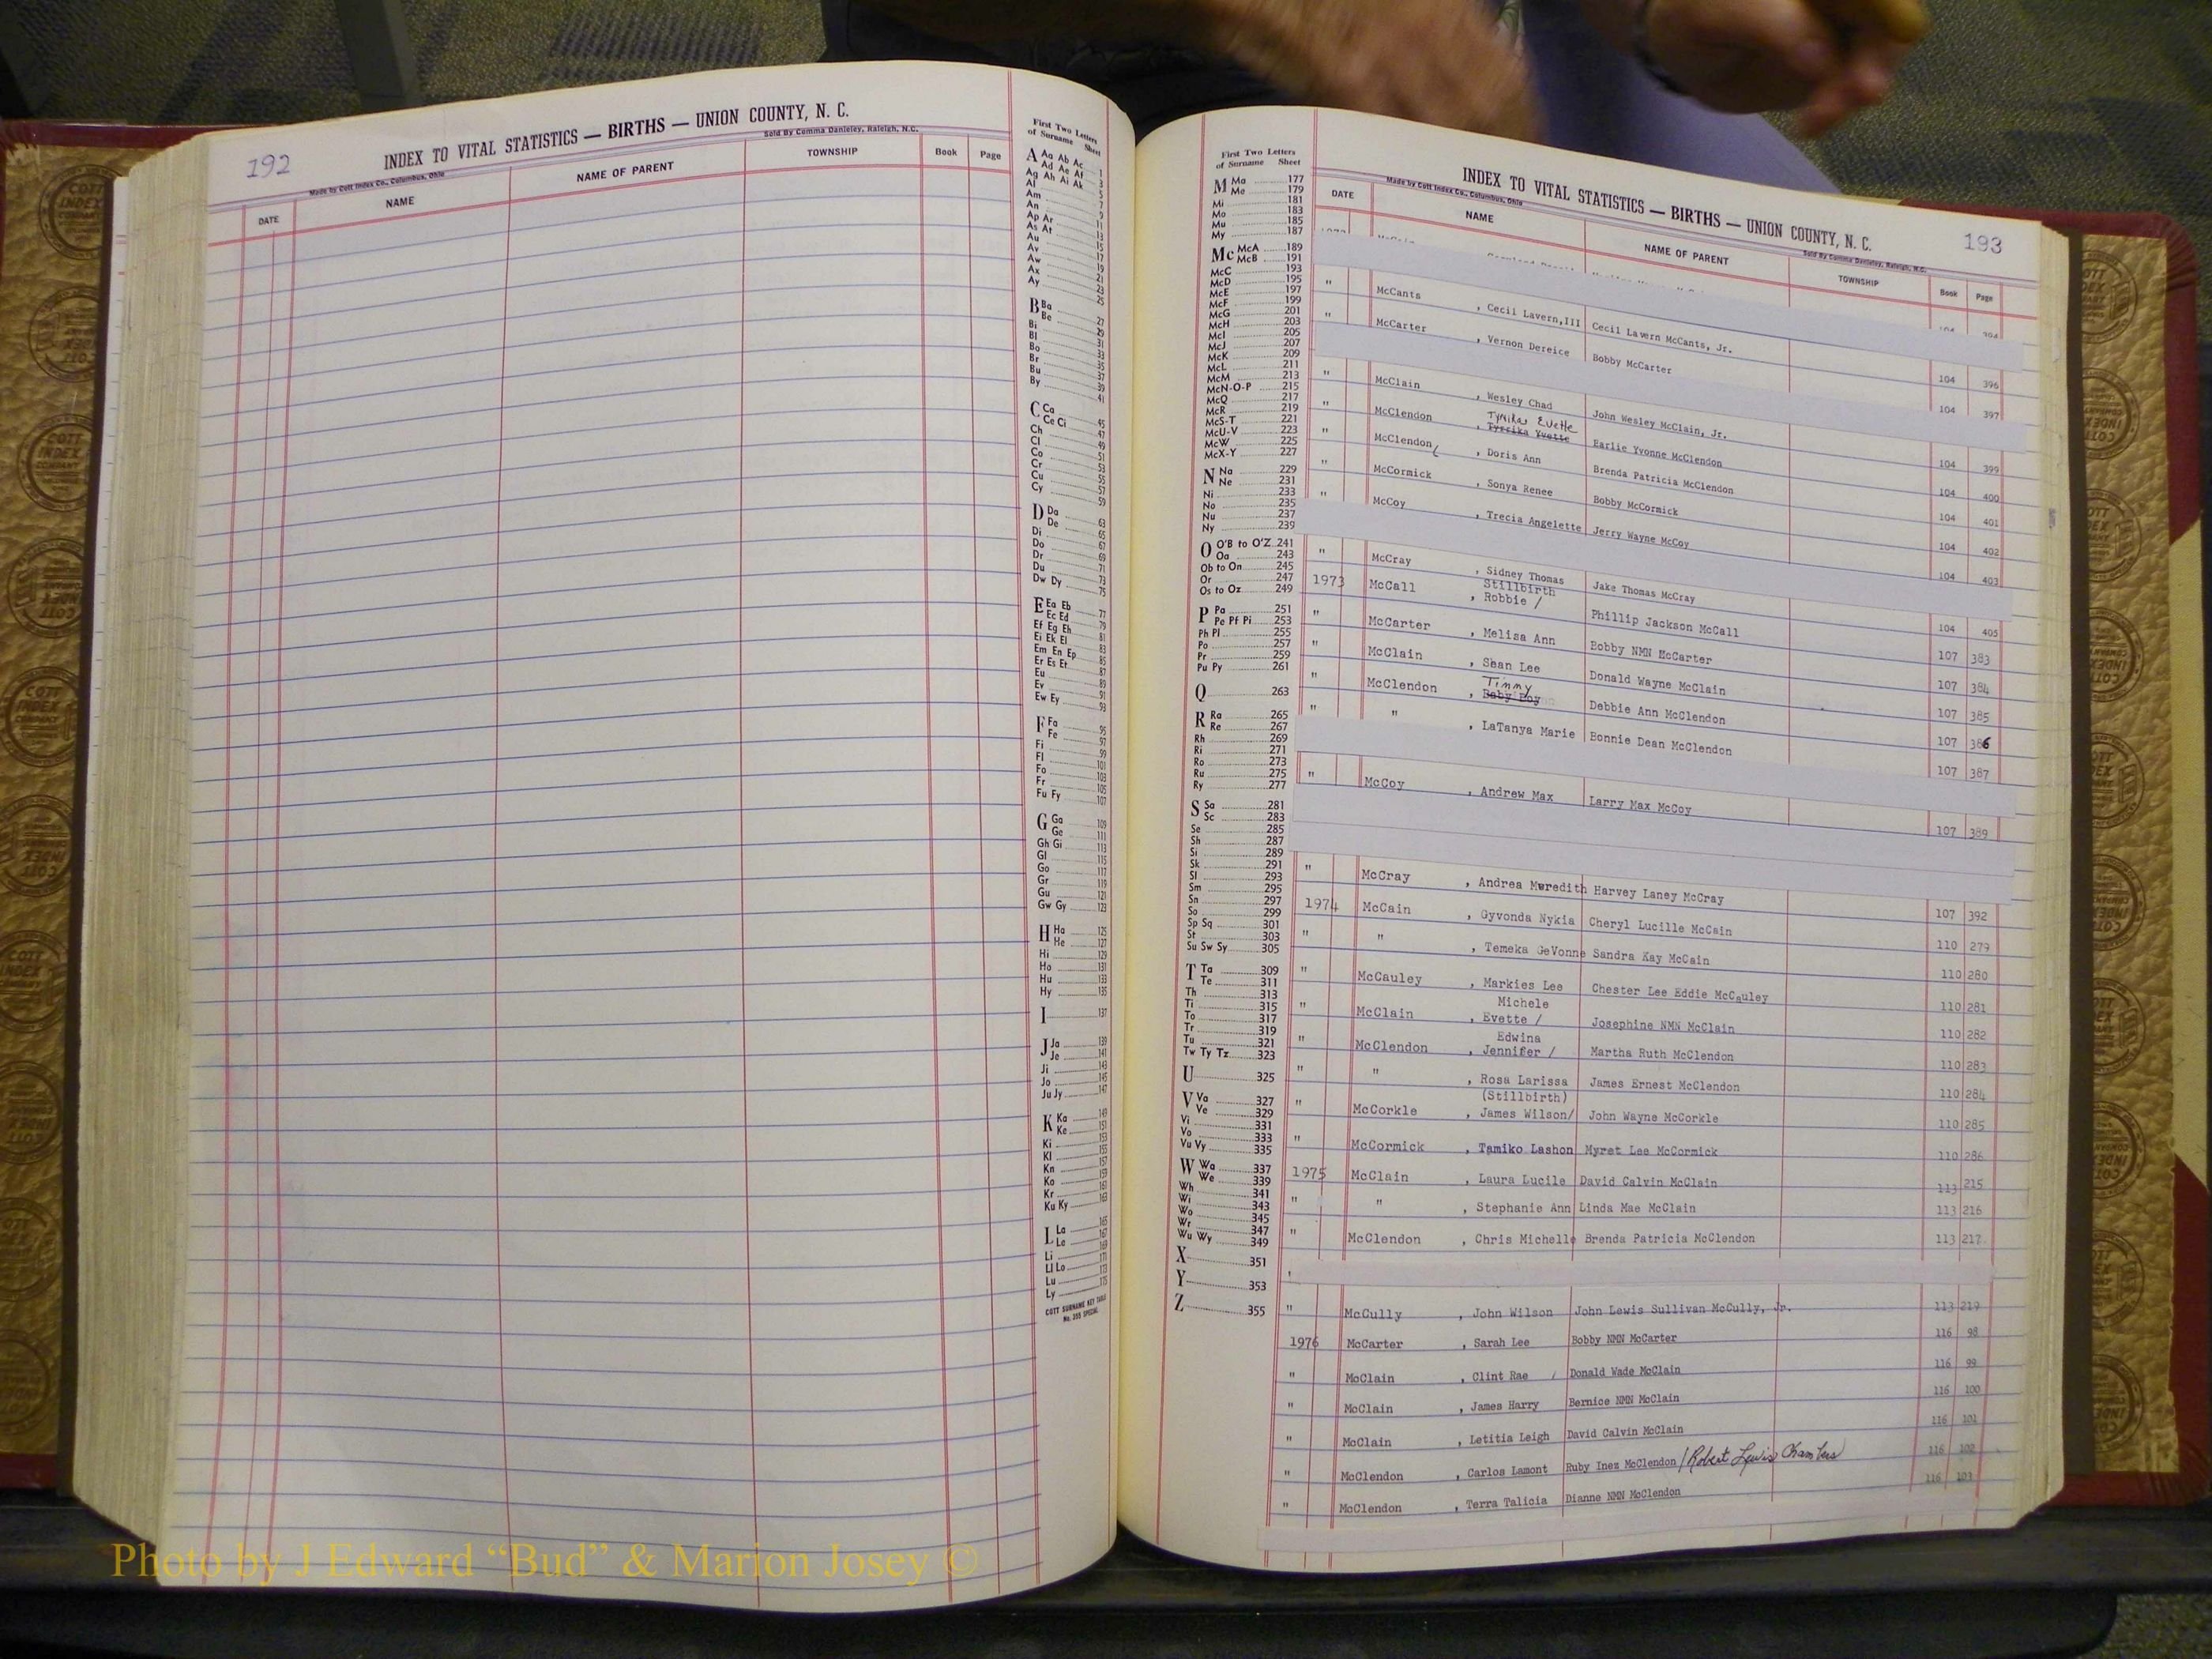 192
INDEX TO VITAL STATISTICS — BIRTHS — UNION COUNTY, N. C.
Made by Cott Index Co., Columbus, Ohio
Sold By Comma Danieley, Raleigh, N.C.
DATE NAME NAME OF PARENT TOWNSHIP Book Page
First Two Letters
of Surname Sheet
A Aa Ab Ac 1
Ad Ae Af 3
Ag Ah Ai Ak 5
Al 7
Am 9
An 11
Ap Ar 13
As At 15
Au 17
Av 19
Aw 21
Ax 23
Ay 25
B Ba 27
Be 29
Bi 31
Bl 33
Bo 35
Br 37
Bu 39
By 41
C Ca 45
Ce Ci 47
Ch 49
Cl 51
Co 53
Cr 55
Cu 57
Cy 59
D Da 63
De 65
Di 67
Do 69
Dr 71
Du 73
Dw Dy 75
E Ea Eb 77
Ec Ed 79
Ef Eg Eh 81
Ei Ek El 83
Em En Ep 85
Er Es Et 87
Eu 89
Ev 91
Ew Ey 93
F Fa 95
Fe 97
Fi 99
Fl 101
Fo 103
Fr 105
Fu Fy 107
G Ga 109
Ge 111
Gh Gi 113
Gl 115
Go 117
Gr 119
Gu 121
Gw Gy 123
H Ha 125
He 127
Hi 129
Ho 131
Hu 133
Hy 135
I 137
J Ja 139
Je 141
Ji 143
Jo 145
Ju Jy 147
K Ka 149
Ke 151
Ki 153
Kl 155
Kn 157
Ko 159
Kr 161
Ku Ky 163
L La 165
Le 167
Li 169
Ll Lo 171
Lu 173
Ly
COTT SURNAME KEY TABLE
No. 355 SPECIAL
First Two Letters
of Surname Sheet
M Ma 177
Me 179
Mi 181
Mo 183
Mu 185
My 187
Mc McA 189
McB 191
McC 193
McD 195
McE 197
McF 199
McG 201
McH 203
McI 205
McJ 207
McK 209
McL 211
McM 213
McN-O-P 215
McQ 217
McR 219
McS-T 221
McU-V 223
McW 225
McX-Y 227
N Na 229
Ne 231
Ni 233
No 235
Nu 237
Ny 239
O O'B to O'Z 241
Oa 243
Ob to On 245
Or 247
Os to Oz 249
P Pa 251
Pe Pf Pi 253
Ph Pl 255
Po 257
Pr 259
Pu Py 261
Q 263
R Ra 265
Re 267
Rh 269
Ri 271
Ro 273
Ru 275
Ry 277
S Sa 281
Sc 283
Se 285
Sh 287
Si 289
Sk 291
Sl 293
Sm 295
Sn 297
So 299
Sp Sq 301
St 303
Su Sw Sy 305
T Ta 309
Te 311
Th 313
Ti 315
To 317
Tr 319
Tu 321
Tw Ty Tz 323
U 325
V Va 327
Ve 329
Vi 331
Vo 333
Vu Vy 335
W Wa 337
We 339
Wh 341
Wi 343
Wo 345
Wr 347
Wu Wy 349
X 351
Y 353
Z 355
INDEX TO VITAL STATISTICS — BIRTHS — UNION COUNTY, N. C.
193
Made by Cott Index Co., Columbus, Ohio
Sold By Comma Danieley, Raleigh, N.C.
DATE NAME NAME OF PARENT TOWNSHIP Book Page
" McCants , Cecil Lavern,III Cecil Lavern McCants, Jr. 104 396
" McCarter , Vernon Dereice Bobby McCarter 104 397
" McClain , Wesley Chad John Wesley McClain, Jr. 104 399
Tynika Evette
" McClendon , Tyreika Yvette Earlie Yvonne McClendon 104 400
" McClendon , Doris Ann Brenda Patricia McClendon 104 401
" McCormick , Sonya Renee Bobby McCormick 104 402
" McCoy , Trecia Angelette Jerry Wayne McCoy 104 403
" McCray , Sidney Thomas Jake Thomas McCray 104 405
Stillbirth
1973 McCall , Robbie / Phillip Jackson McCall 107 383
" McCarter , Melisa Ann Bobby NMN McCarter 107 384
" McClain , Sean Lee Donald Wayne McClain 107 385
Timmy
" McClendon , Baby Boy Debbie Ann McClendon 107 386
" " , LaTanya Marie Bonnie Dean McClendon 107 387
" McCoy , Andrew Max Larry Max McCoy 107 389
" McCray , Andrea Meredith Harvey Laney McCray 107 392
1974 McCain , Gyvonda Nykia Cheryl Lucille McCain 110 279
" " , Temeka GeVonne Sandra Kay McCain 110 280
" McCauley , Markies Lee Chester Lee Eddie McCauley 110 281
Michele
" McClain , Evette / Josephine NMN McClain 110 282
Edwina
" McClendon , Jennifer / Martha Ruth McClendon 110 283
" " , Rosa Larissa James Ernest McClendon 110 284
(Stillbirth)
" McCorkle , James Wilson/ John Wayne McCorkle 110 285
" McCormick , Tamiko Lashon Myret Lee McCormick 110 286
1975 McClain , Laura Lucile David Calvin McClain 113 215
" " , Stephanie Ann Linda Mae McClain 113 216
" McClendon , Chris Michelle Brenda Patricia McClendon 113 217
" McCully , John Wilson John Lewis Sullivan McCully, Jr. 113 219
1976 McCarter , Sarah Lee Bobby NMN McCarter 116 98
" McClain , Clint Rae / Donald Wade McClain 116 99
" McClain , James Harry Bernice NMN McClain 116 100
" McClain , Letitia Leigh David Calvin McClain 116 101
" McClendon , Carlos Lamont Ruby Inez McClendon / Robert Lewis Chambers 116 102
" McClendon , Terra Talicia Dianne NMN McClendon 116 103
Photo by J Edward “Bud” & Marion Josey ©